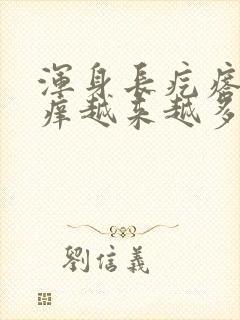 渾身長疙瘩
癢越来越多
劉信義